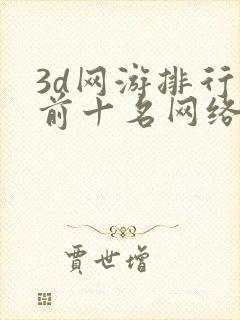 3d网游排行
前十名网络
贾世增